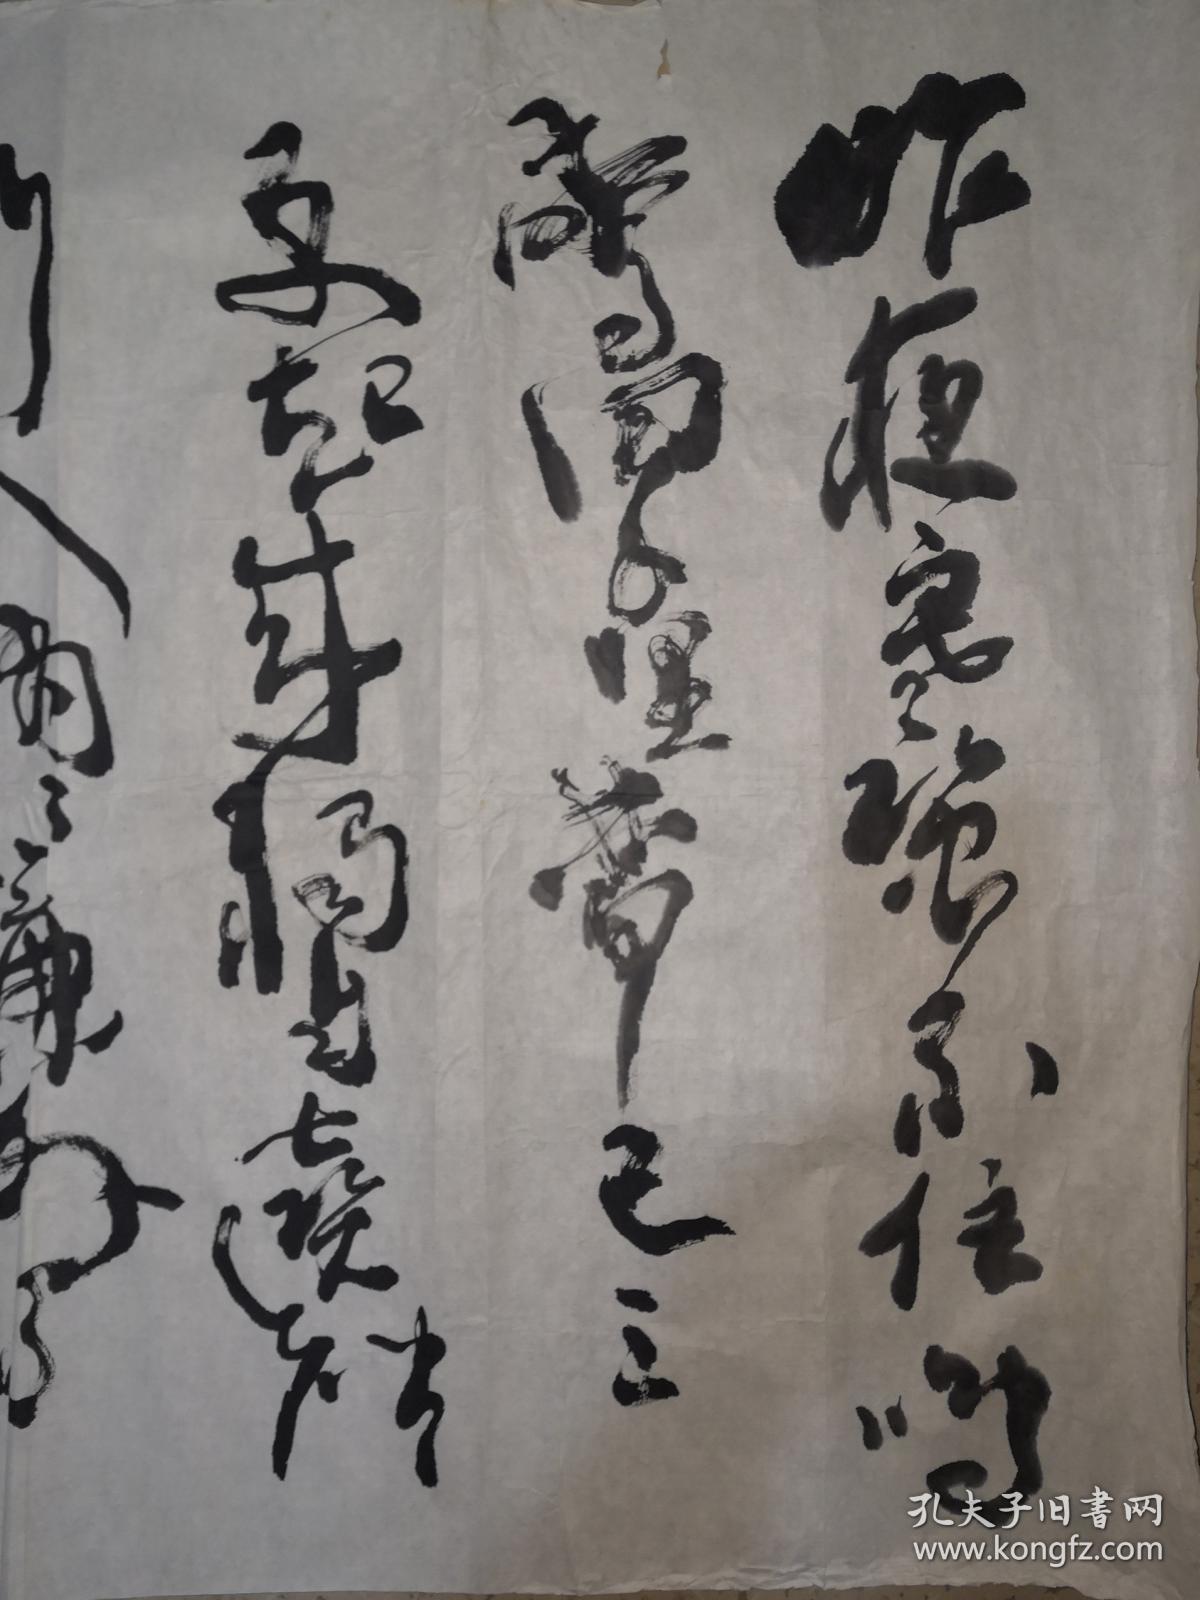 昨夜寒蛩不住鳴
驚回千里夢已三
更起来獨自遶階
行人悄悄簾外月
孔夫子旧书网
www.kongfz.com